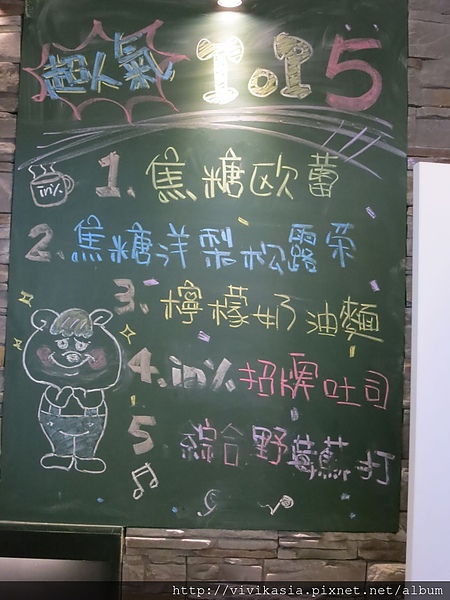 超人氣 ToP5
in%
1. 焦糖欧蕾
2. 焦糖洋梨松露茶
3. 檸檬奶油麵
4. in% 招牌吐司
5 綜合野莓蘇打
http://vivikasia.pixnet.net/album